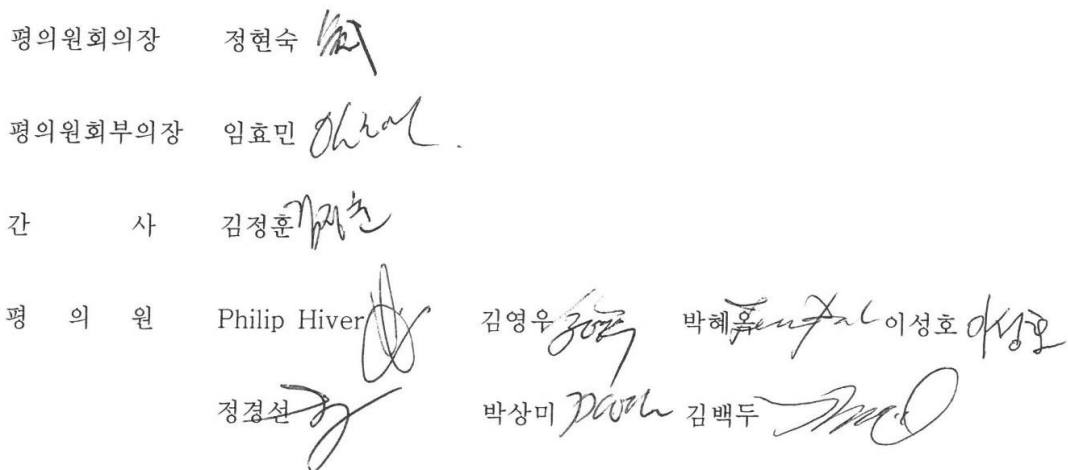 평의원회의장 정현숙
평의원회부의장 임효민
간 사 김정훈 김정훈
평 의 원 Philip Hiver 김영우 박혜홈 이성호 이성호
정경선 박상미 김백두